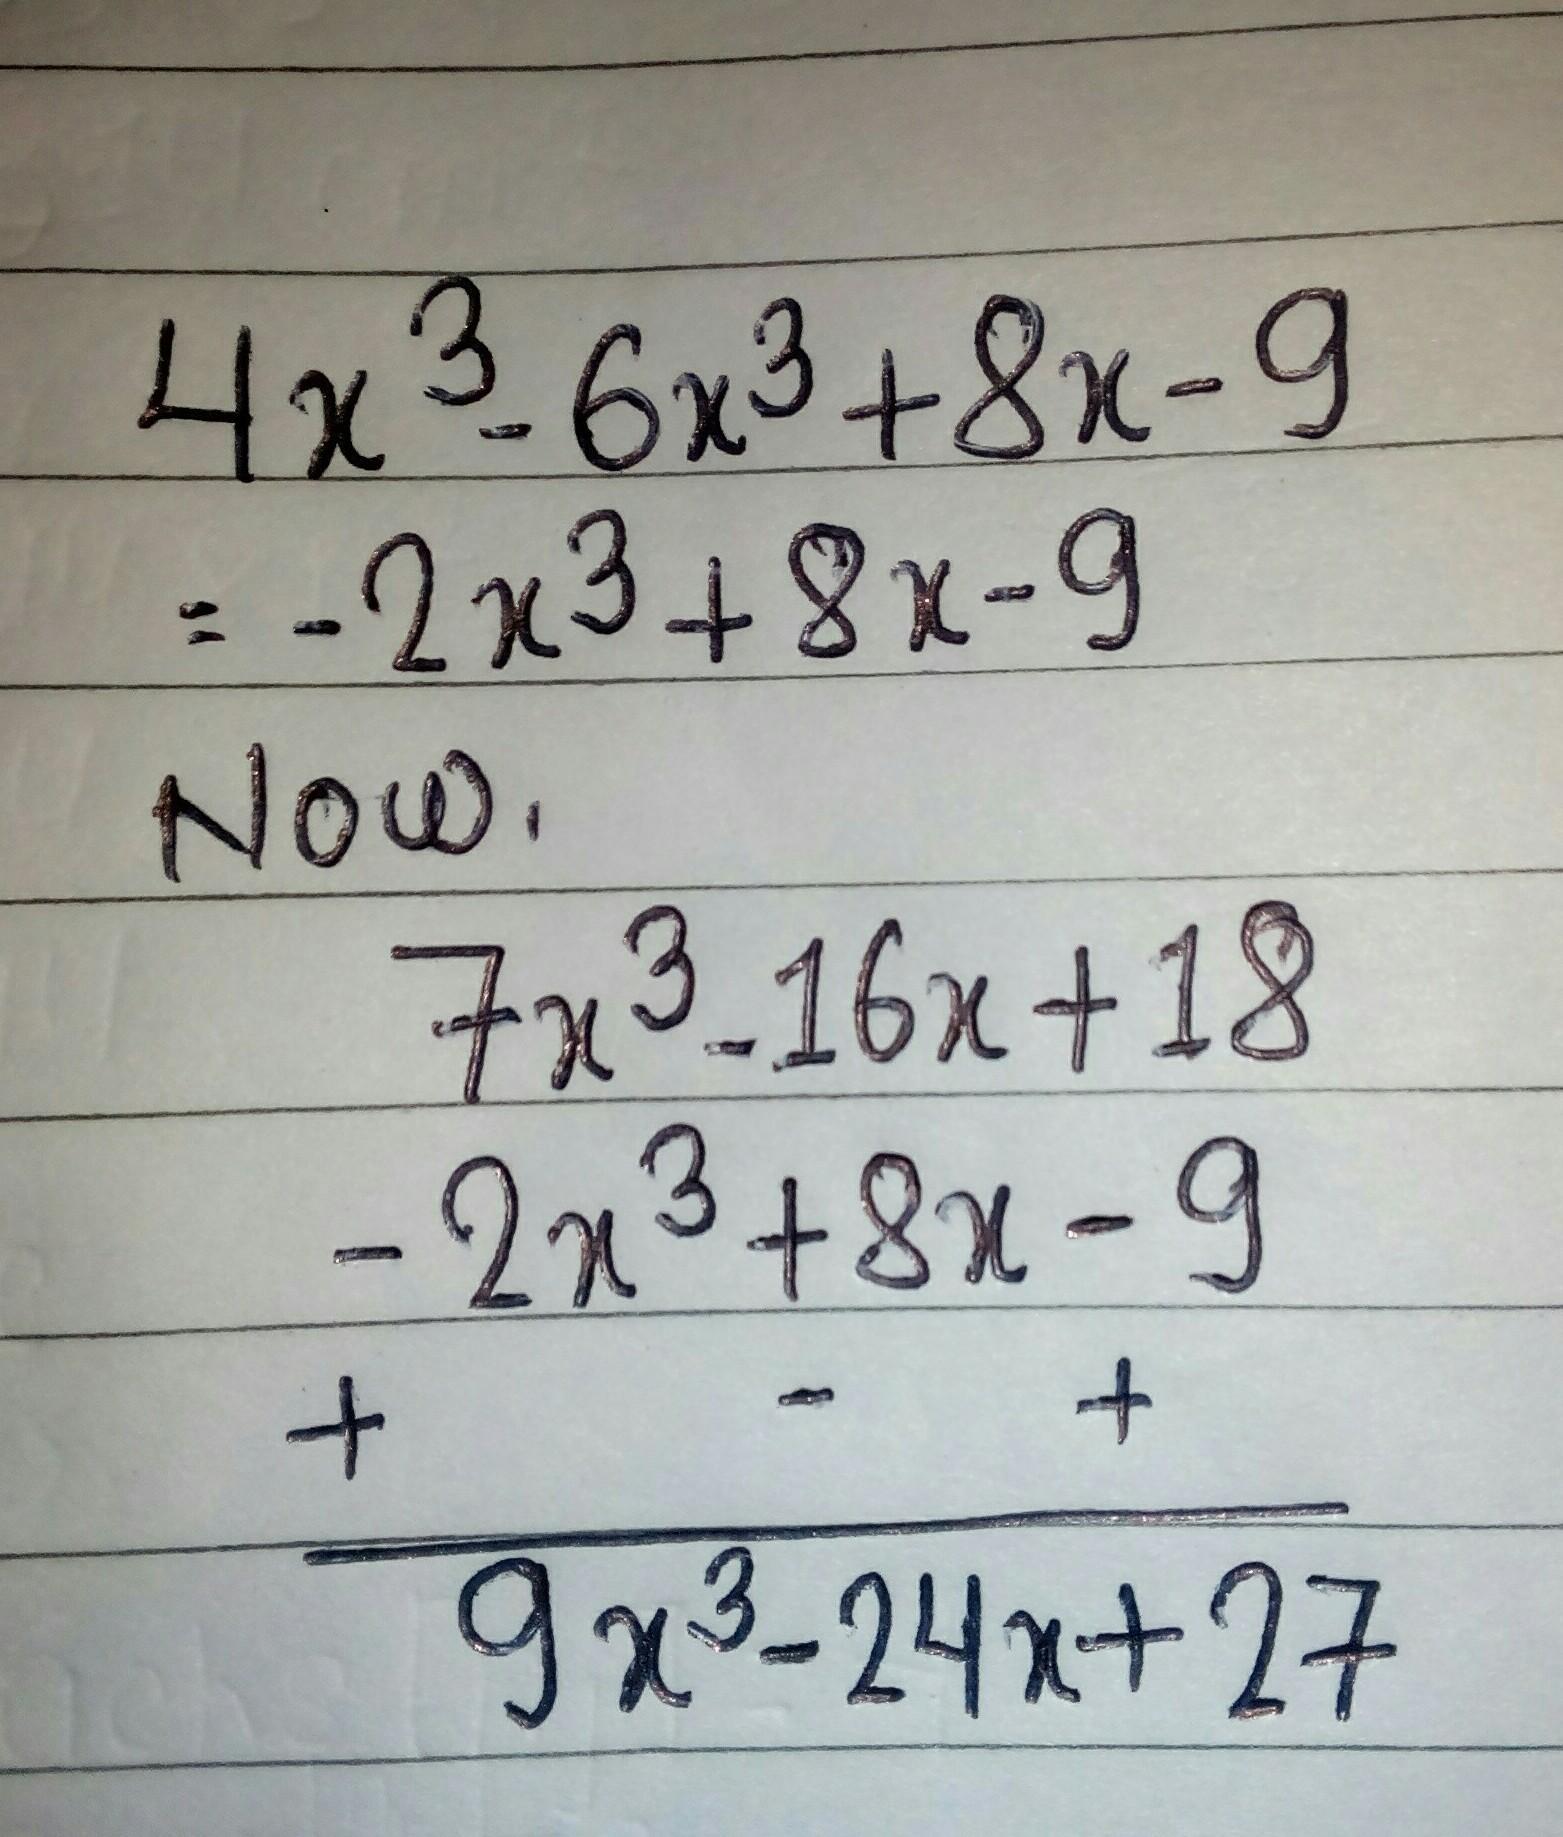 4x³ - 6x³ + 8x - 9
= -2x³ + 8x - 9
Now.
7x³ - 16x + 18
- 2x³ + 8x - 9
+ - +
9x³ - 24x + 27